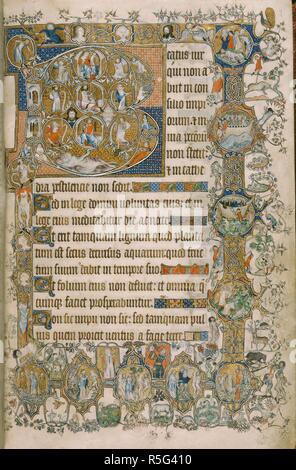 Beatus uir
qui non a
biit in con
silio imp
iorum & in
uia
non stetit
& in cathe
dra pestilencie non sedit.
Sed in lege domini uoluntas eius: et in
lege eius meditabitur die ac nocte
Et erit tamquam lignum quod plan
tatum est secus decursus aquarum quod fruc
tum suum dabit in tempore suo
Et folium eius non defluet: et omnia q̄
cumque faciet prosperabuntur.
Non sic impii non sic: sed tamquam pul
uis quem proicit uentus a facie terre.
alamy
Image ID: R5G410
www.alamy.com